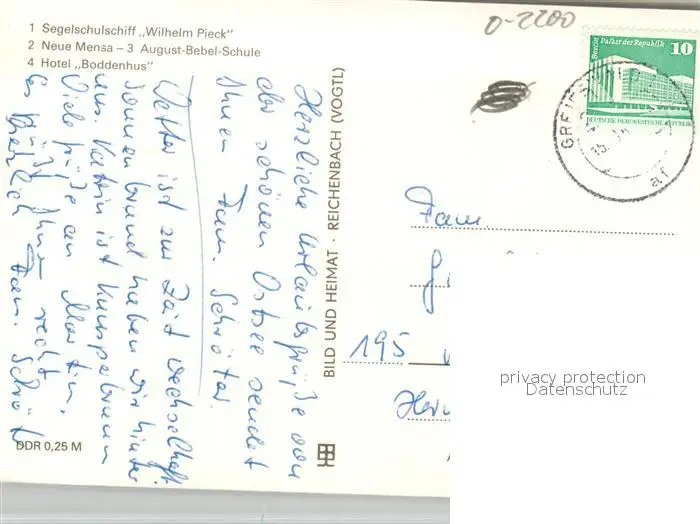 1 Segelschulschiff „Wilhelm Pieck"
2 Neue Mensa – 3 August-Bebel-Schule
4 Hotel „Boddenhus"
0-2200
Berlin Palast der Republik 10
DEUTSCHE DEMOKRATISCHE REPUBLIK
GREIFSWALD
Herzliche Urlaubsgrüße von
der schönen Ostsee sendet
Ihnen Fam. Schröter.
Wetter ist zur Zeit wechselhaft
Sonnenbrand haben wir hinter
uns. Katrin ist
Viele Grüße an Martin.
Es grüßt Ihnen recht
herzlich Fam. Schröt
BILD UND HEIMAT · REICHENBACH (VOGTL)
DDR 0,25 M
Fam.
195
privacy protection
Datenschutz